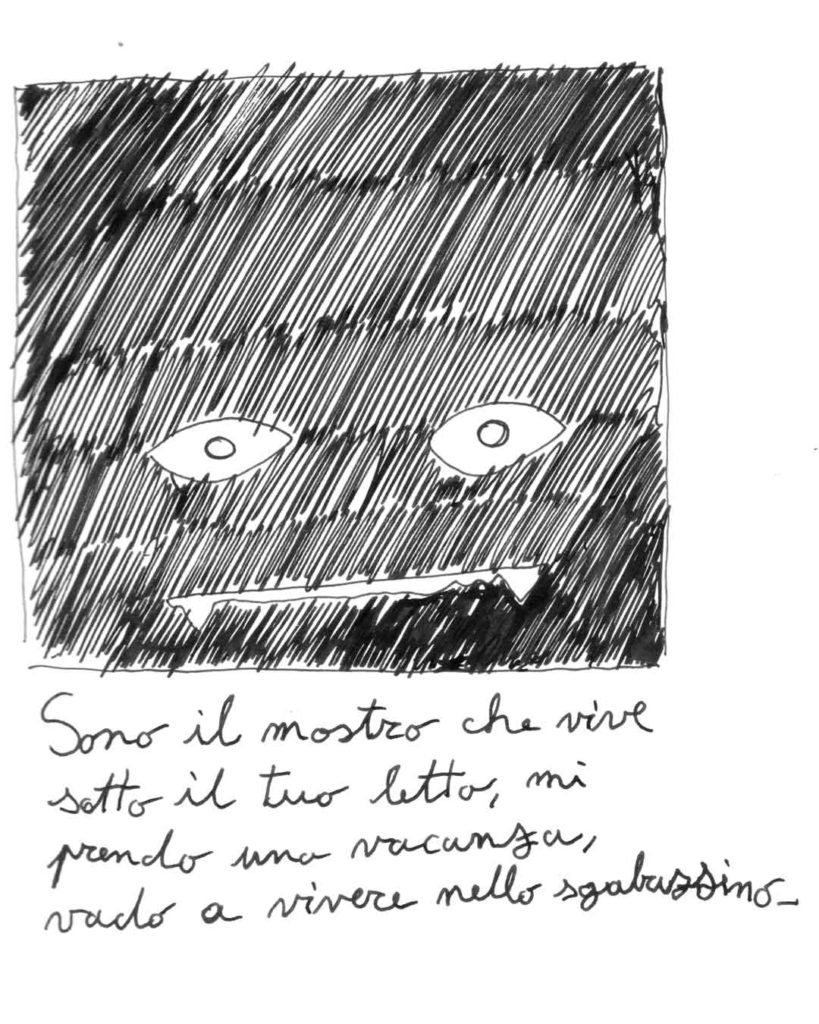 Sono il mostro che vive
sotto il tuo letto, mi
prendo una vacanza,
vado a vivere nello sgabuzzino_